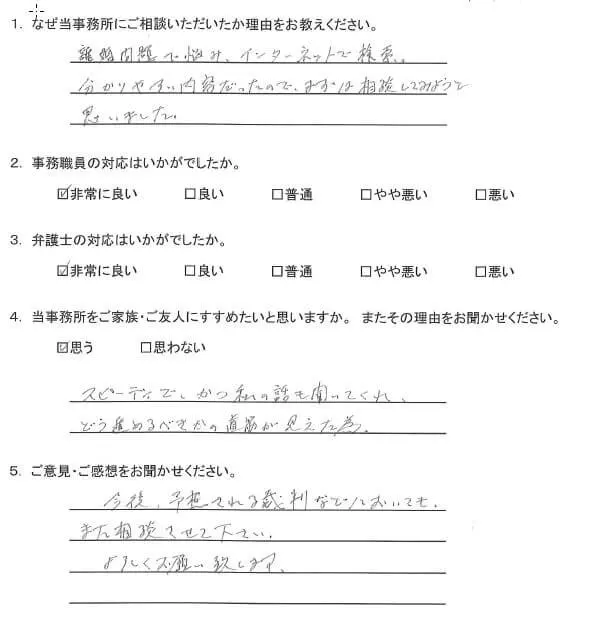 1. なぜ当事務所にご相談いただいたか理由をお教えください。
離婚問題で悩み、インターネットで検索。
分かりやすい内容だったので、まずは相談してみようと
思いました。
2. 事務職員の対応はいかがでしたか。
☑非常に良い □良い □普通 □やや悪い □悪い
3. 弁護士の対応はいかがでしたか。
☑非常に良い □良い □普通 □やや悪い □悪い
4. 当事務所をご家族・ご友人にすすめたいと思いますか。 またその理由をお聞かせください。
☑思う □思わない
スピーディで、かつ私の話も聞いてくれ、
どう進めるべきかの道筋が見えた為。
5. ご意見・ご感想をお聞かせください。
今後、予想される裁判などにおいても、
また相談させて下さい。
よろしくお願い致します。